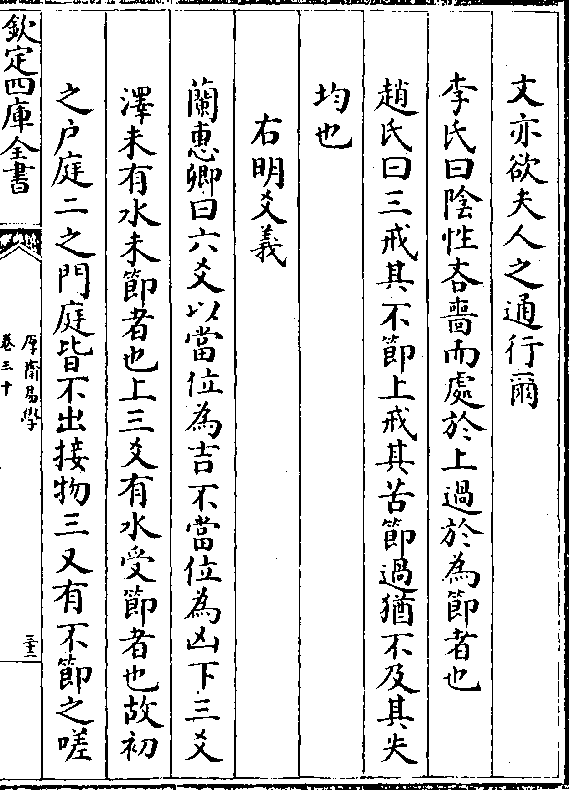 文亦欲夫人之通行爾
李氏曰陰性吝嗇而處於上過於為節者也
趙氏曰三戒其不節上戒其苦節過猶不及其失
均也
右明爻義
蘭惠卿曰六爻以當位為吉不當位為凶下三爻
澤未有水未節者也上三爻有水受節者也故初
之户庭二之門庭皆不出接物三又有不節之嗟
欽定四庫全書
厚齋易學
卷三十
三十二